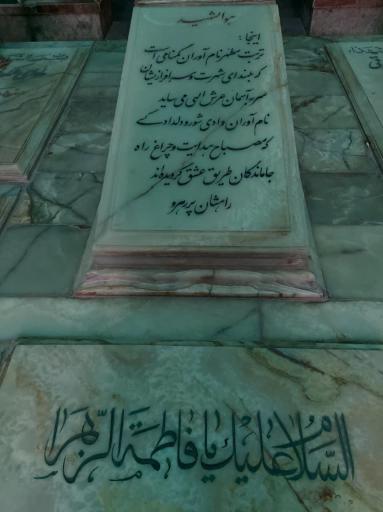 هو الشهید
اینجا:
تربت مطهر نام آوران گمنامی است
که بلندای شهرت و سرافرازیشان
سر بر آسمان عرش الهی می ساید
نام آوران وادی شور و دلدادگی
که مصباح هدایت و چراغ راه
جاماندگان طریق عشق گردیده اند
راهشان پر رهرو
السلام علیک یا فاطمة الزهرا